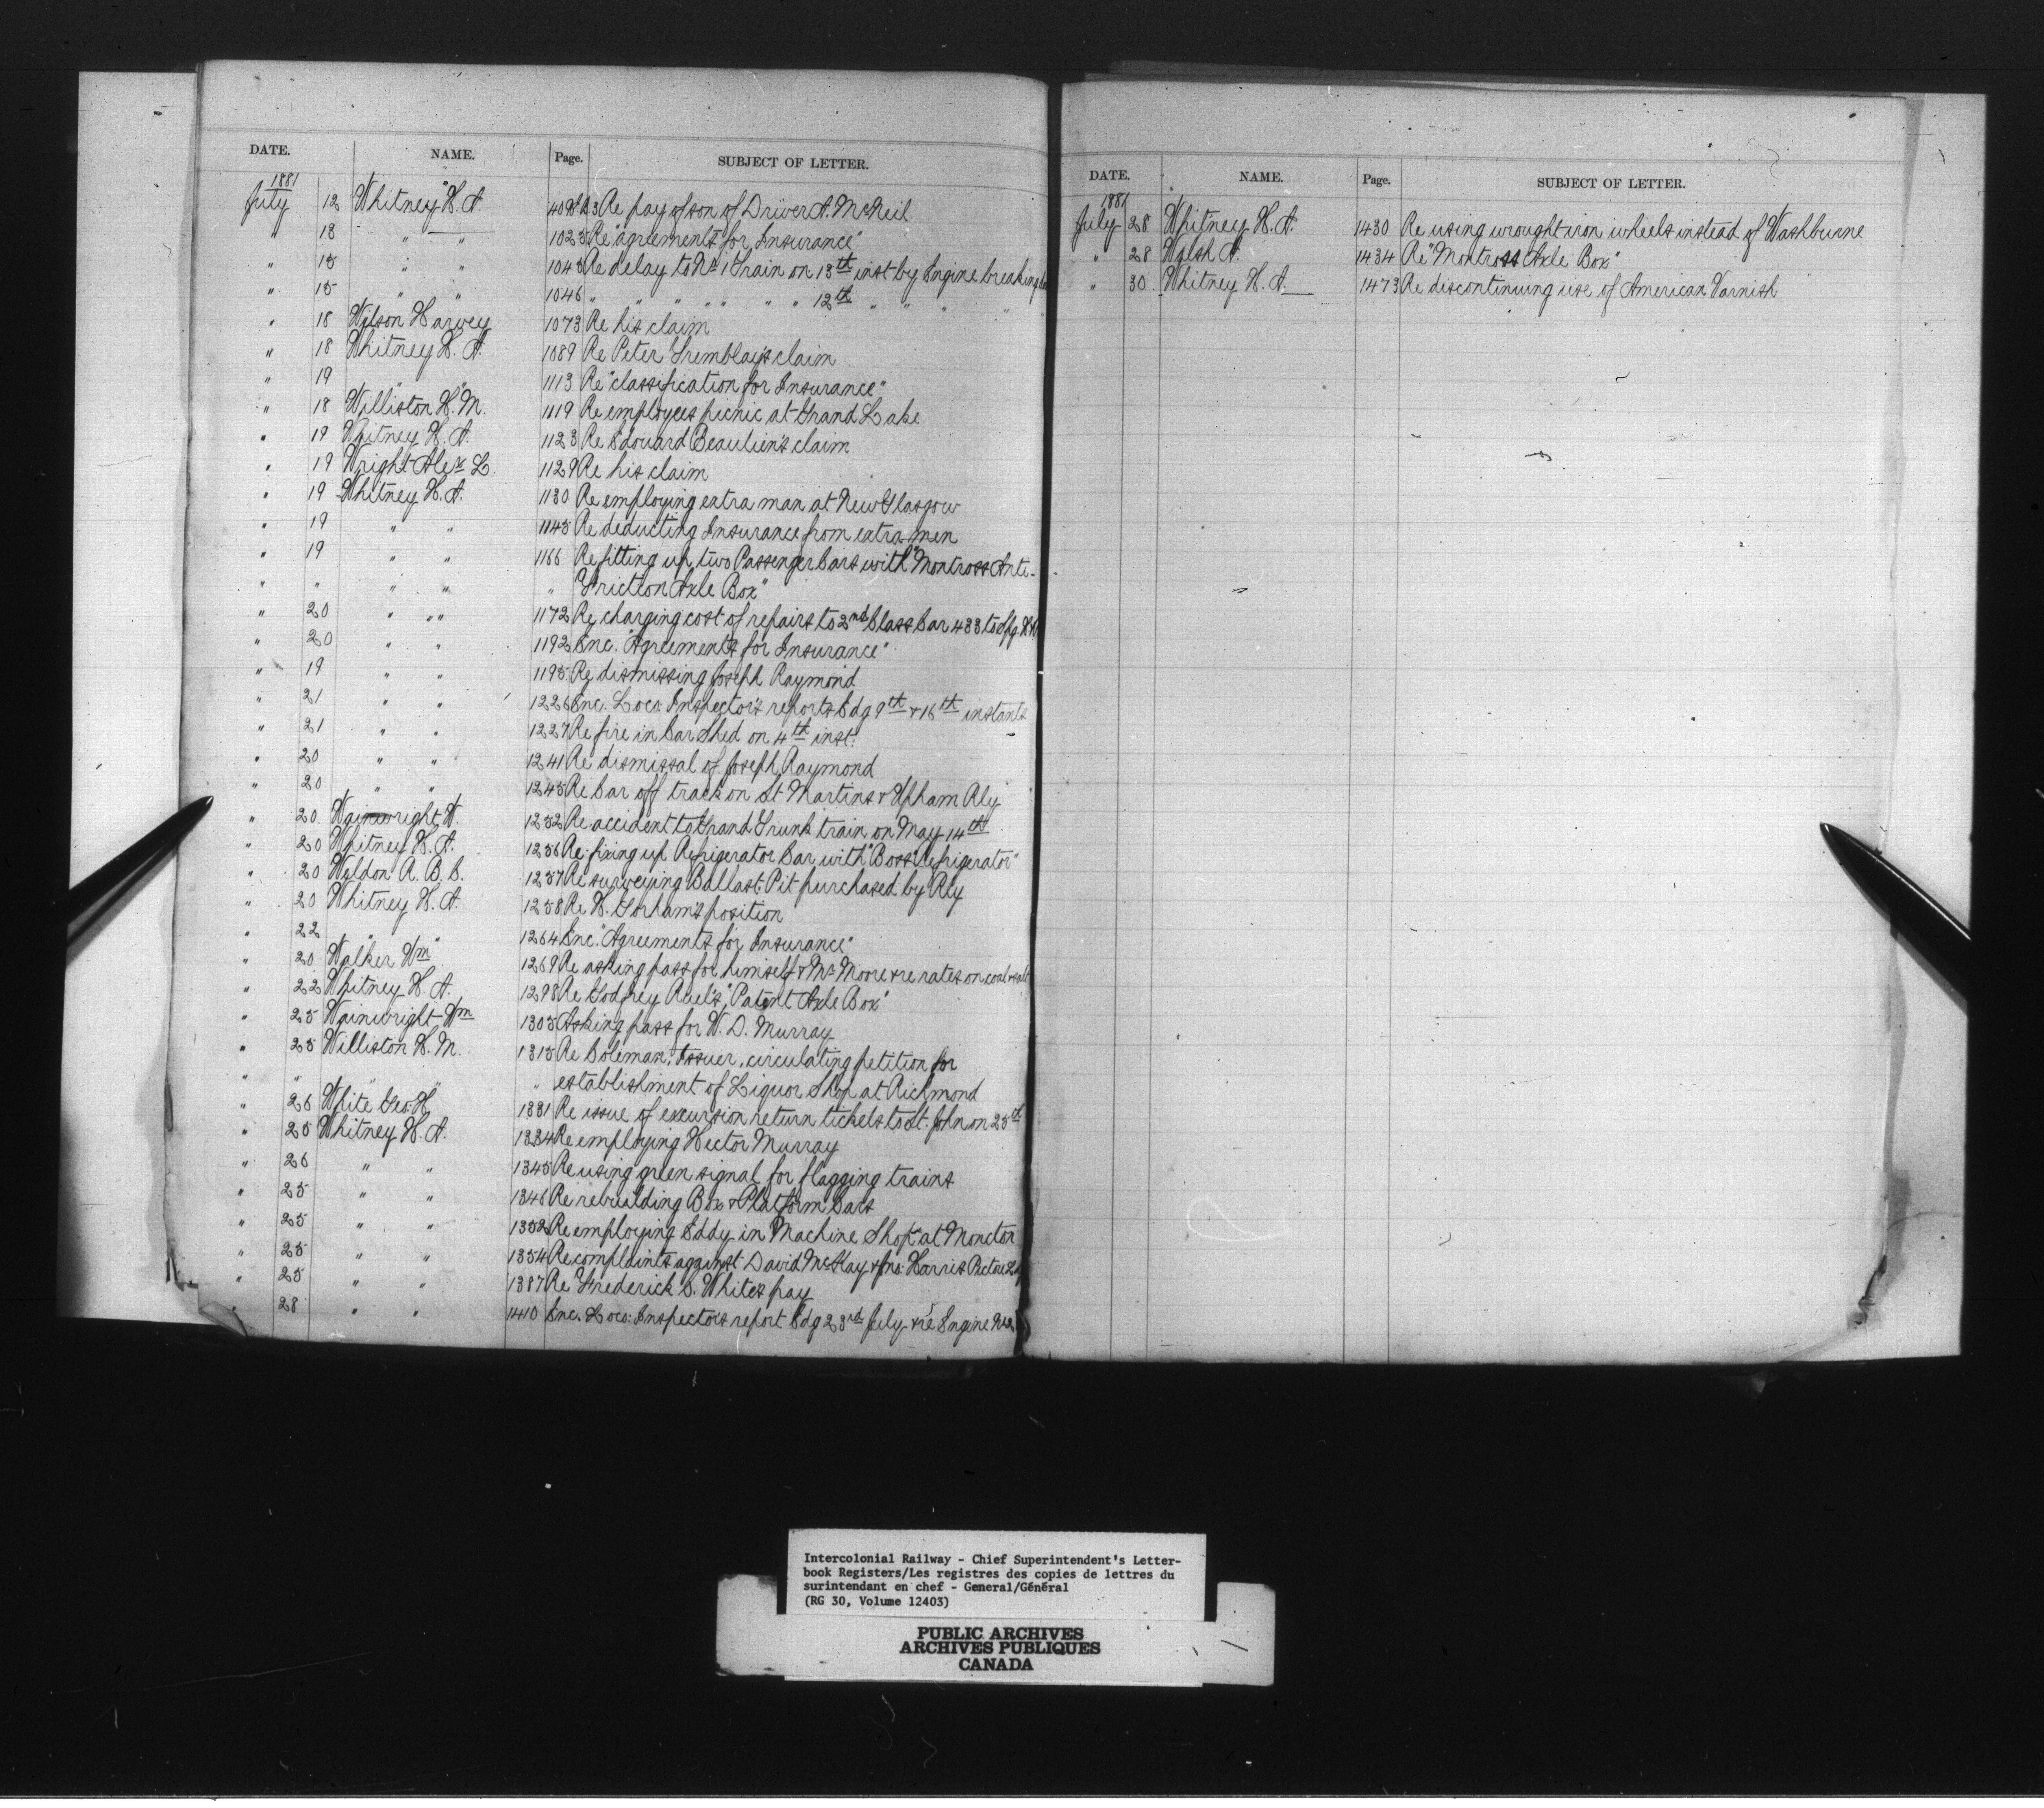 DATE. NAME. Page. SUBJECT OF LETTER.
1881
July 12 Whitney H. A. Re pay of son of Driver A. McNeil
" 13 " " 1023 Re "agreements for Insurance"
" 15 " " 1045 Re delay to No 1 Train on 13th inst by Engine breaking
" 15 " " 1046 " " " " " " " 12th " " " " "
" 18 Wilson Harvey 1073 Re his claim
" 18 Whitney H. A. 1089 Re Peter Tremblay's claim
" 19 " " 1113 Re "classification for Insurance"
" 18 Williston H. M. 1119 Re employees picnic at Grand Lake
" 19 Whitney H. A. 1123 Re Edouard Beaulieu's claim
" 19 Wright Alex L. 1129 Re his claim
" 19 Whitney H. A. 1130 Re employing extra man at New Glasgow
" 19 " " 1145 Re deducting Insurance from extra men
" 19 " " 1166 Re fitting up two Passenger Cars with "Montross Anti-
" " " " " Friction Axle Box"
" 20 " " 1172 Re charging cost of repairs to 2nd Class Car 433 to Spg.
" 20 " " 1192 Enc. "Agreements for Insurance"
" 19 " " 1195 Re dismissing Joseph Raymond
" 21 " " 1226 Enc. Loco: Inspector's reports Edg 9th & 16th instants
" 21 " " 1227 Re fire in Car Shed on 4th inst.
" 20 " " 1241 Re dismissal of Joseph Raymond
" 20 " " 1245 Re Car off track on St Martins & Upham Rly
" 20 Wainwright W. 1252 Re accident to Grand Trunk train on May 14th
" 20 Whitney H. A. 1256 Re fixing up Refrigerator Car with "Boss Refrigerator"
" 20 Weldon A. B. C. 1257 Re surveying Ballast Pit purchased by Rly
" 20 Whitney H. A. 1258 Re H. Gorham's position
" 22 " " 1264 Enc. "Agreements for Insurance"
" 20 Walker Wm 1269 Re asking pass for himself & Mr Moore & re rates on coal & salt
" 22 Whitney H. A. 1298 Re Godfrey Ruel's "Patent Axle Box"
" 25 Wainwright Wm 1305 Asking pass for W. D. Murray
" 25 Williston H. M. 1315 Re Coleman, Issuer, circulating petition for
" " " " " establishment of Liquor Shop at Richmond
" 26 White Geo. H. 1331 Re issue of excursion return tickets to St. John on 25th
" 25 Whitney H. A. 1334 Re employing Hector Murray
" 26 " " 1345 Re using green signal for flagging trains
" 25 " " 1346 Re rebuilding Box & Platform Cars
" 25 " " 1352 Re employing Eddy in Machine Shop at Moncton
" 25 " " 1354 Re complaints against David McKay & Jno: Harris Pictou
" 25 " " 1387 Re Frederick C. White's pay
" 28 " " 1410 Enc. Loco: Inspector's report Edg 23rd July & re Engine
DATE. NAME. Page. SUBJECT OF LETTER.
1881
July 28 Whitney H. A. 1430 Re using wrought iron wheels instead of Washburne
" 28 Walsh A. 1434 Re "Montross Axle Box"
" 30 Whitney H. A. 1473 Re discontinuing use of American Varnish
Intercolonial Railway - Chief Superintendent's Letter-
book Registers/Les registres des copies de lettres du
surintendant en chef - General/Général
(RG 30, Volume 12403)
PUBLIC ARCHIVES
ARCHIVES PUBLIQUES
CANADA